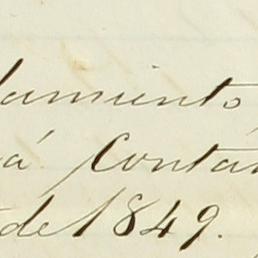 lamiento
á Contar
de 1849.